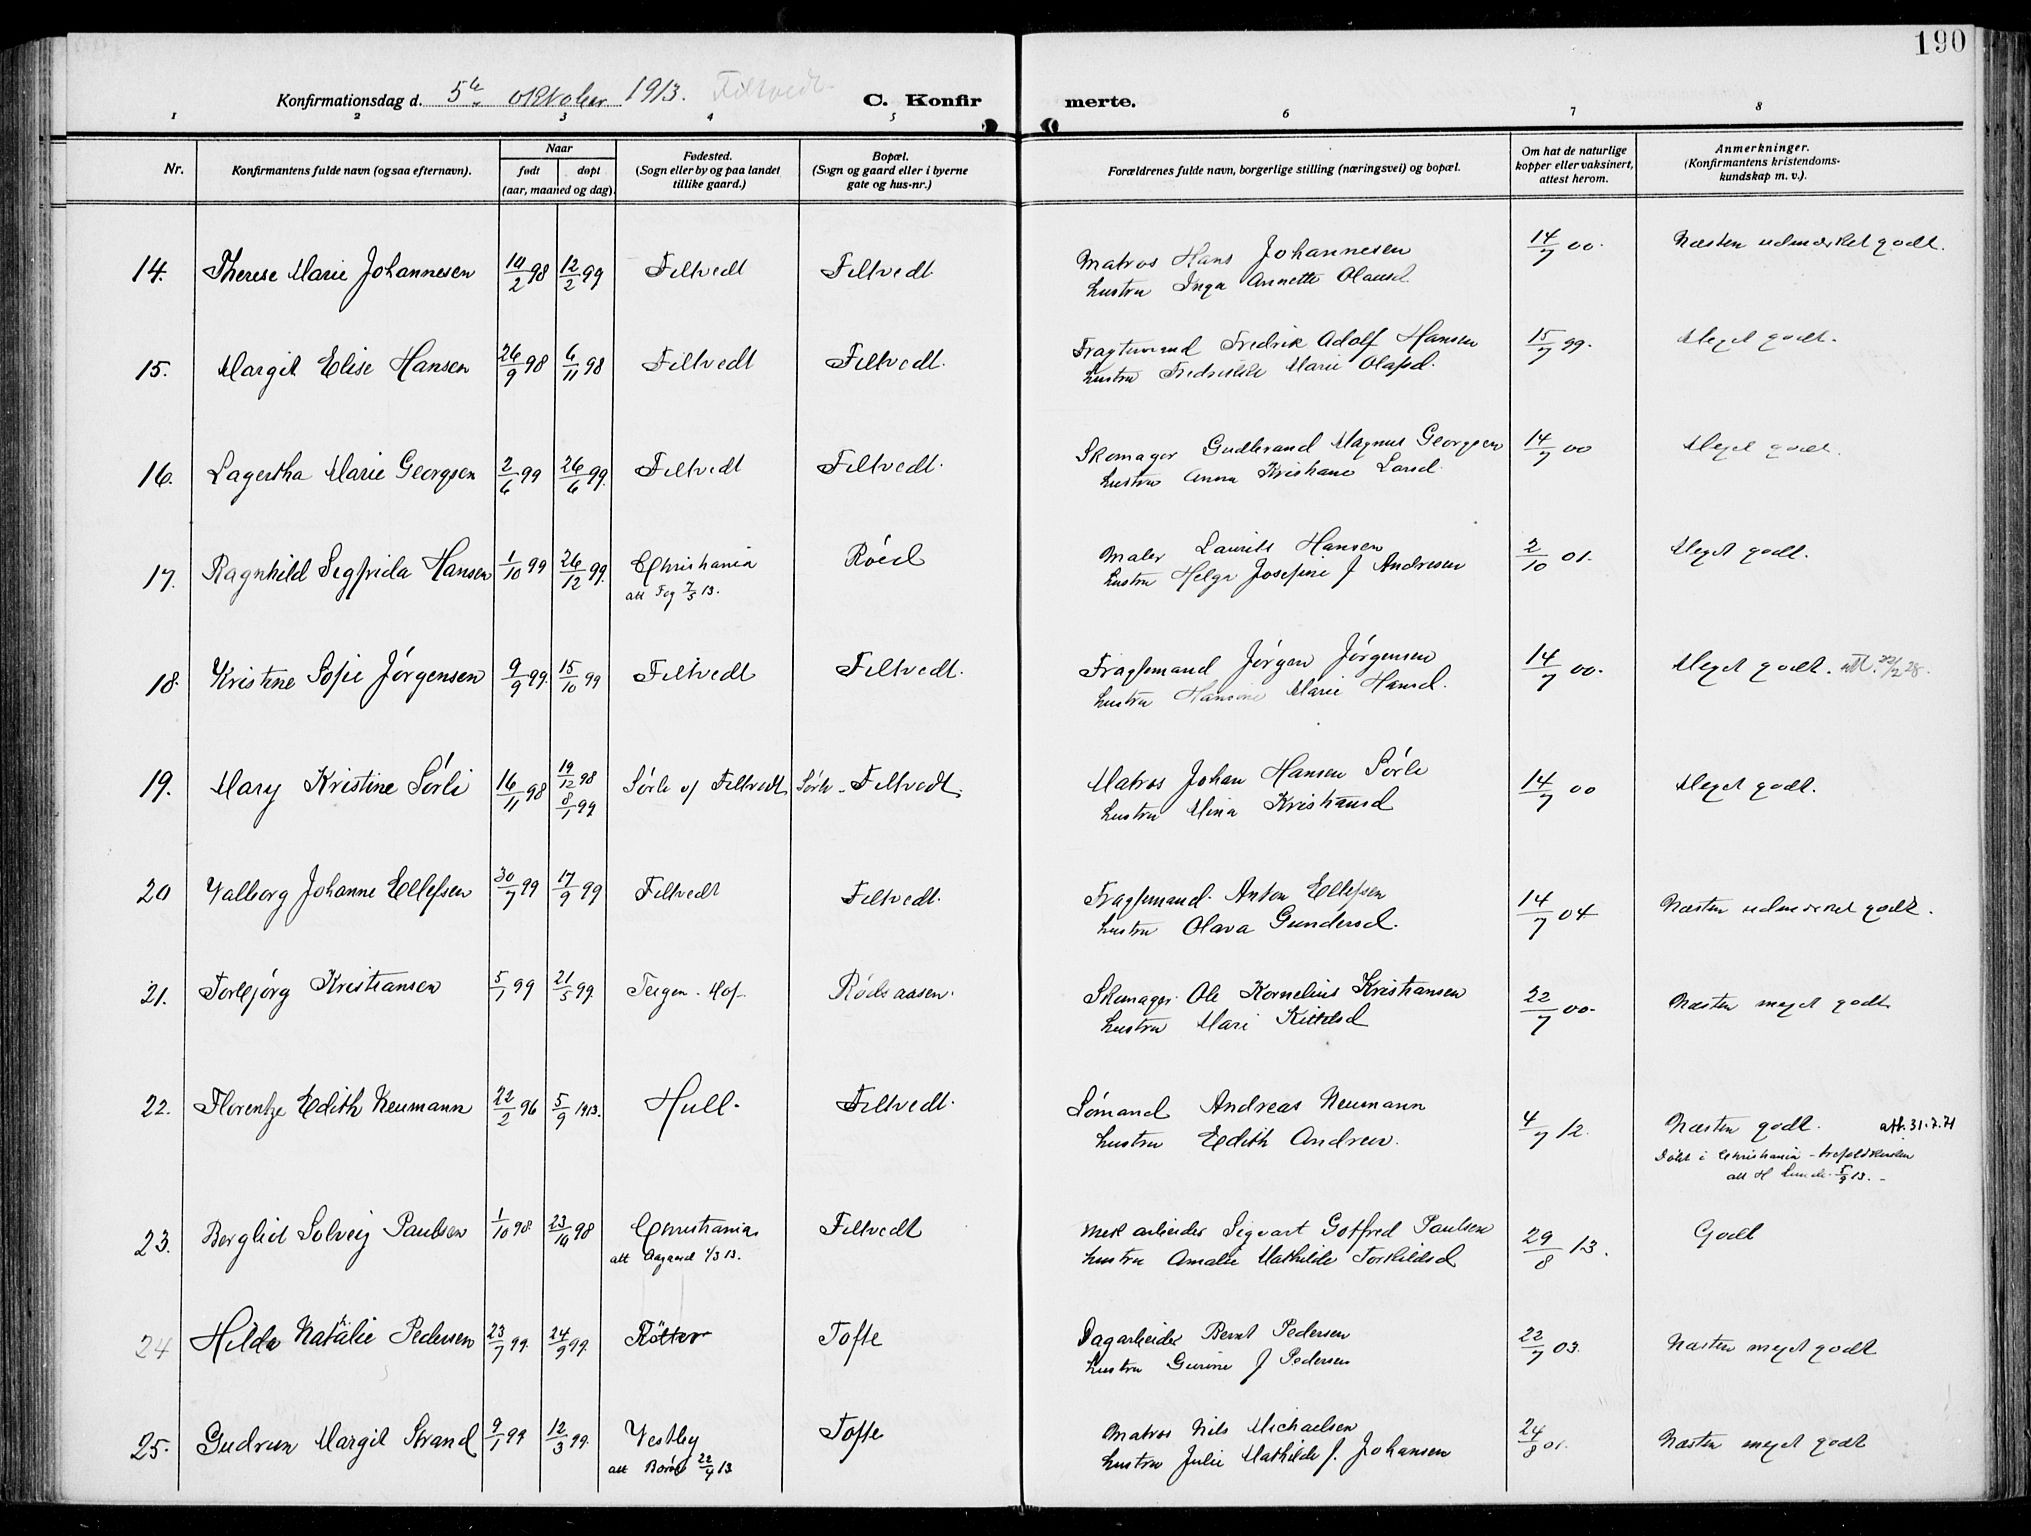 190
Konfirmationsdag d. 5te oktober 1913. Filtvedt
C. Konfirmerte.
1 2 3 4 5 6 7 8
Nr. Konfirmantens fulde navn (ogsaa efternavn). Naar født døpt (aar, maaned og dag). Fødested. (Sogn eller by og paa landet tillike gaard.) Bopæl. (Sogn og gaard eller i byerne gate og hus-nr.) Forældrenes fulde navn, borgerlige stilling (næringsvei) og bopæl. Om hat de naturlige kopper eller vaksinert, attest herom. Anmerkninger. (Konfirmantens kristendomskundskap m. v.).
14. Therese Marie Johannesen 14/2 98 12/2 99 Filtvedt Filtvedt Matros Hans Johannesen 14/7 00. Næsten udmærket godt.
hustru Inga Annette Olausd.
15. Margit Elise Hansen 26/9 98 6/11 98 Filtvedt Filtvedt. Fragtemand Fredrik Adolf Hansen 15/7 99. Meget godt.
hustru Fredrikke Marie Olafsd.
16. Lagertha Marie Georgsen 2/6 99 26/6 99. Filtvedt Filtvedt. Skomager Gudbrand Magnus Georgsen 14/7 00 Meget godt.
hustru Anna Kristiane Larsd.
17. Ragnhild Sigfrida Hansen 1/10 99 26/12 99. Christiania Röed Maler Laurits Hansen 2/10 01. Meget godt.
att Fog 7/5 13. hustru Helga Josefine J Andresen
18. Kristine Sofie Jørgensen 9/9 99. 15/10 99 Filtvedt Filtvedt. Fragtemand Jørgen Jørgensen 14/7 00. Meget godt. att. 22/2 28.
hustru Hansine Marie Hansd.
19. Mary Kristine Sørli 16/11 98 19/12 98 8/1 99 Sørle v/ Filtvedt Sørle - Filtvedt. Matros Johan Hansen Sørle 14/7 00 Meget godt.
hustru Mina Kristiansd
20 Valborg Johanne Ellefsen 30/7 99 17/9 99 Filtvedt Filtvedt. Fragtemand Anton Ellefsen 14/7 04 Næsten udmærket godt.
hustru Olava Gundersd.
21. Torbjørg Kristiansen 5/1 99 21/5 99. Teigen. Hof Rødsaasen. Skomager Ole Kornelius Kristiansen 22/7 00. Næsten meget godt
hustru Mari Kittelsd
22. Florentze Edith Neumann 22/2 96 5/9 1913. Hull. Filtvedt. Sømand Andreas Neumann 4/7 12. Næsten godt. att. 31.7.71
hustru Edith Andrea. Døbt i Christiania -
att H Lunde 5/9 13.
23. Bergliot Solveig Paulsen 1/10 98 23/10 98 Christiania Filtvedt Mek arbeider Sigvart Gotfred Paulsen 29/8 13. Godt
att Aagaard 1/3 13. hustru Amalie Mathilde Torkildsd
24 Hilda Natalie Pedersen 23/7 99. 24/9 99. Røtter Tofte Dagarbeider Bernt Pedersen 22/7 03. Næsten meget godt
hustru Gurine J Pedersen
25. Gudrun Margit Strand 9/1 99 12/3 99. Vestby Tofte Matros Nils Michaelsen 24/8 01. Næsten meget godt
att 22/4 13 hustru Julie Mathilde J. Johansen